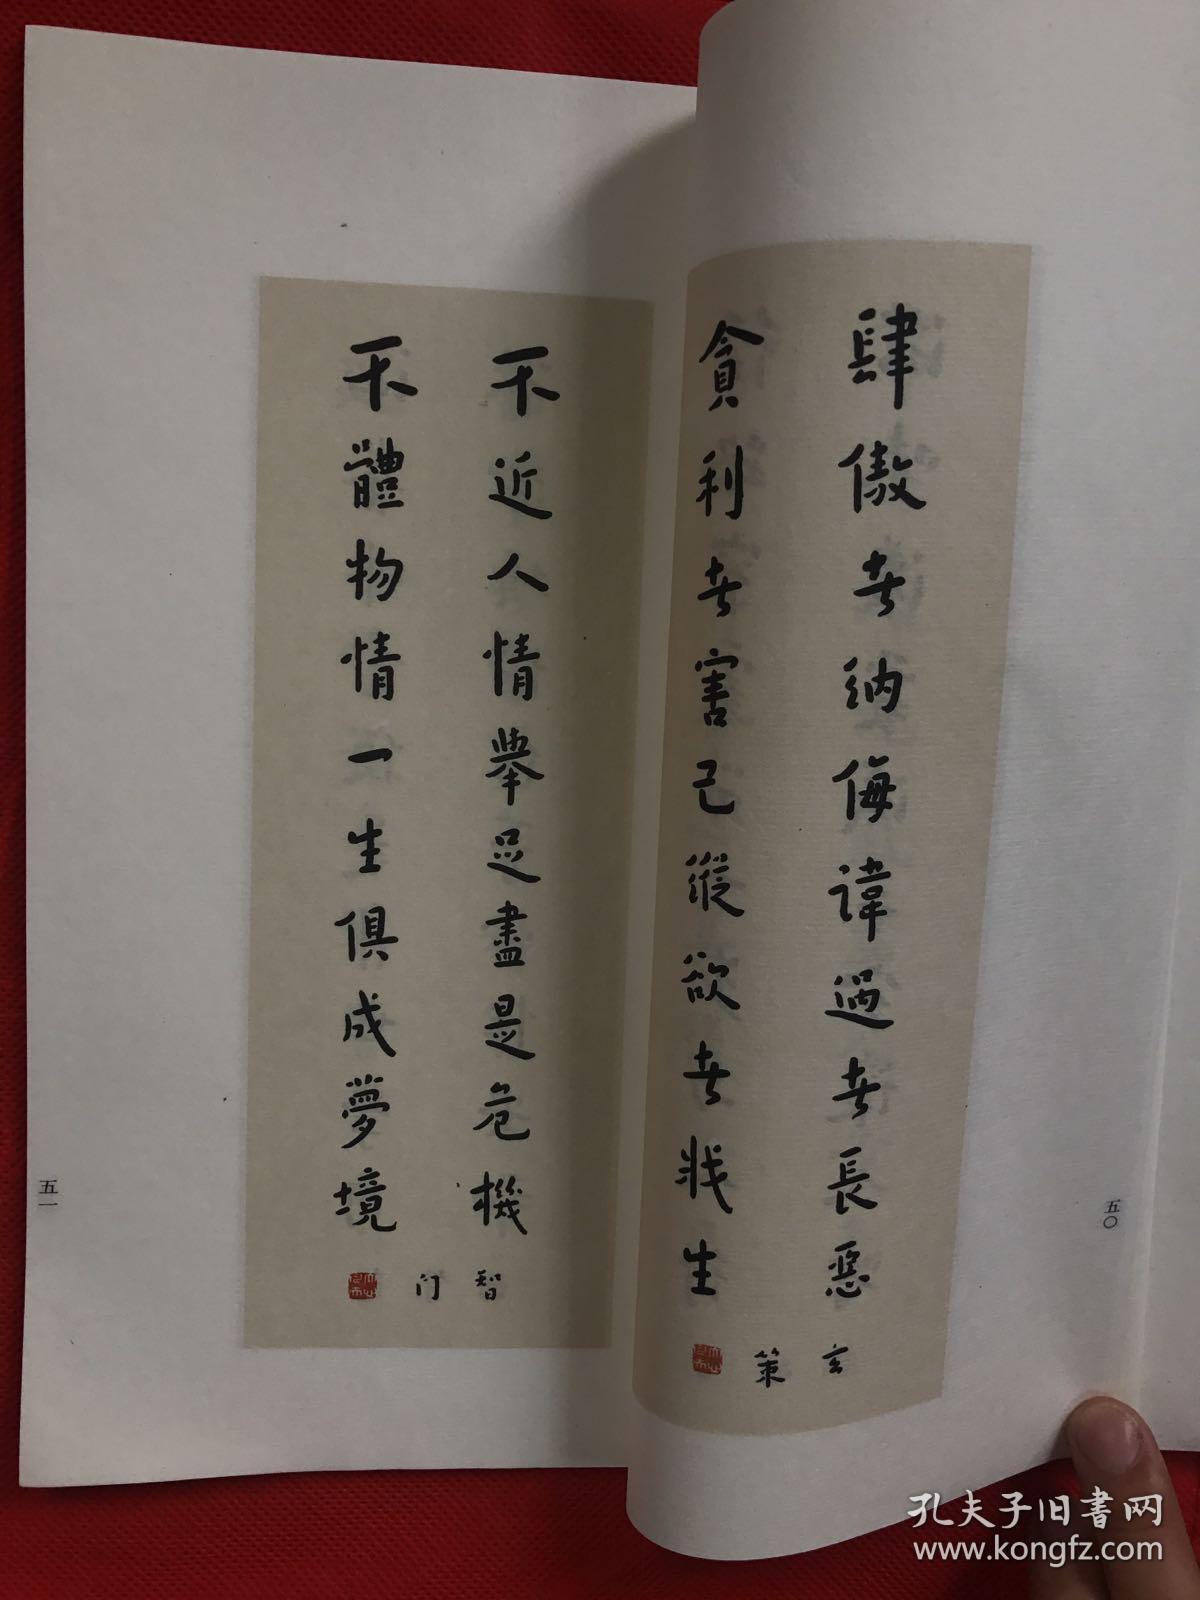 肆傲者納侮諱過者長惡
貪利者害己縱欲者戕生
玄策
五〇
不近人情舉足盡是危機
不體物情一生俱成夢境
智门
五一
孔夫子旧書网
www.kongfz.com